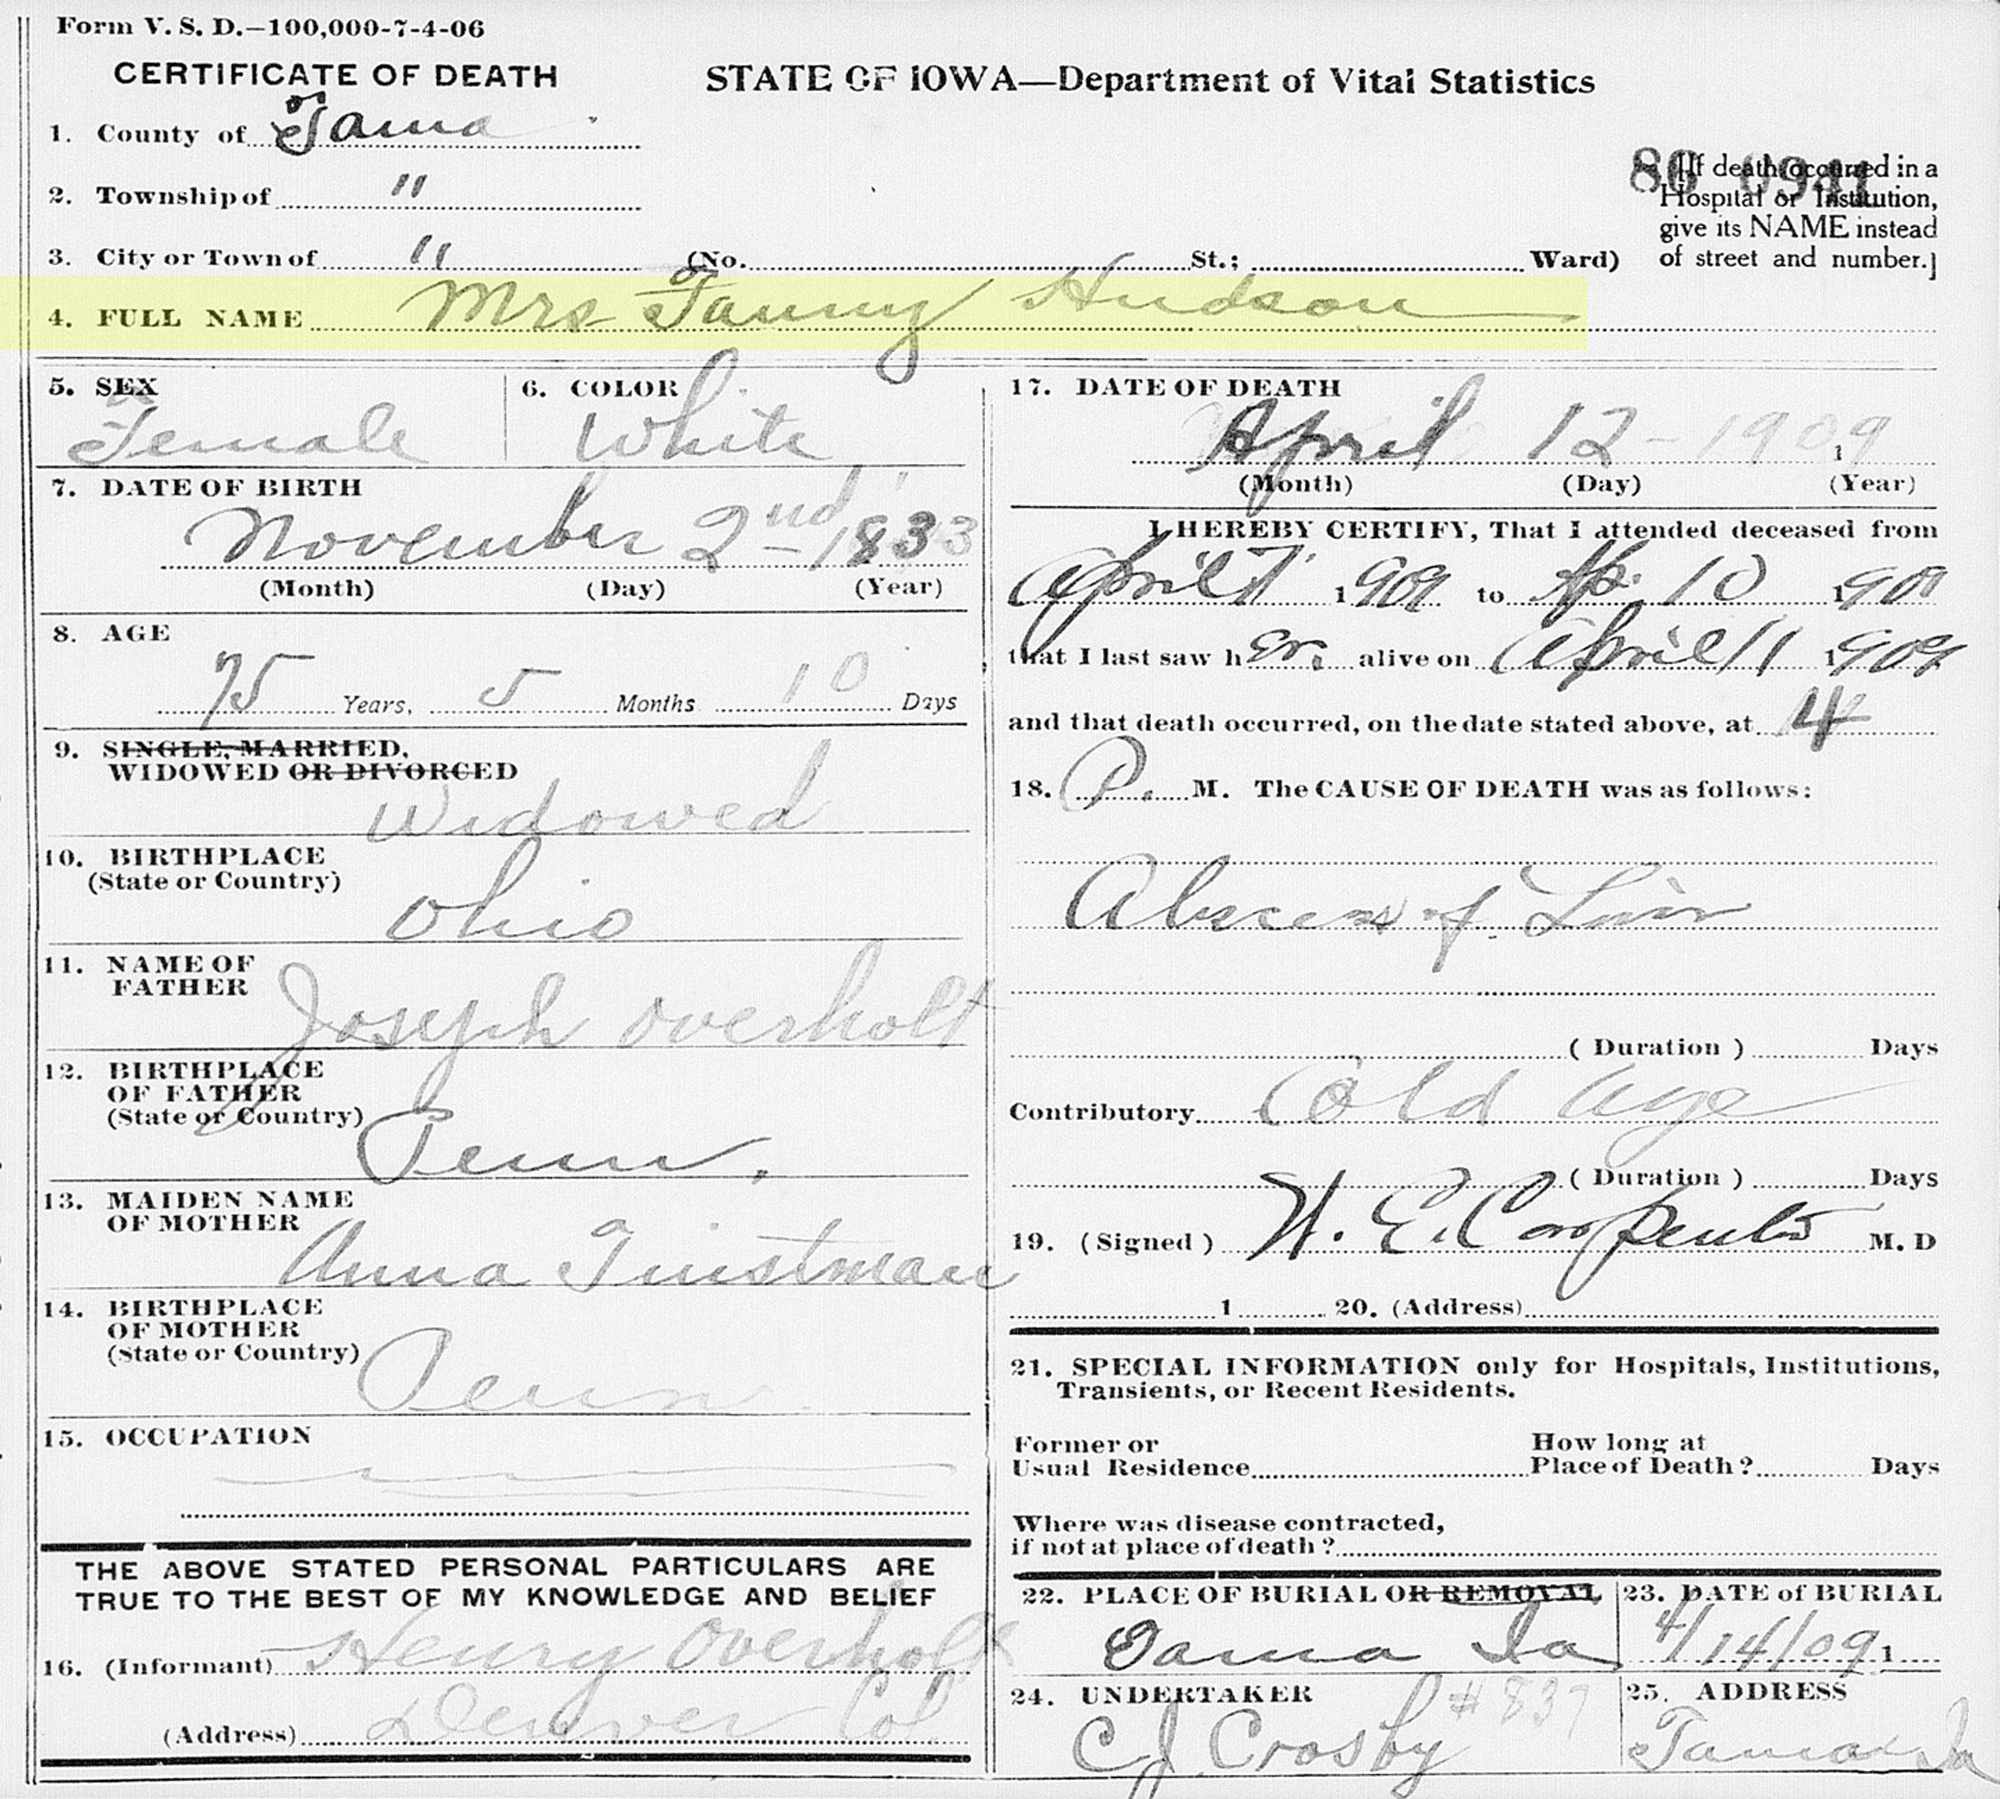 Form V. S. D.—100,000-7-4-06
CERTIFICATE OF DEATH
STATE OF IOWA—Department of Vital Statistics
1. County of Tama
2. Township of "
3. City or Town of " (No. St.; Ward)
[If death occurred in a
Hospital or Institution,
give its NAME instead
of street and number.]
4. FULL NAME Mrs Fanny Hudson
5. SEX
Female
6. COLOR
White
7. DATE OF BIRTH
November 2nd - 1833
(Month) (Day) (Year)
8. AGE
75 Years, 5 Months 10 Days
9. SINGLE, MARRIED,
WIDOWED OR DIVORCED
Widowed
10. BIRTHPLACE
(State or Country)
Ohio
11. NAME OF
FATHER
Joseph Overholt
12. BIRTHPLACE
OF FATHER
(State or Country)
Penn.
13. MAIDEN NAME
OF MOTHER
Anna
14. BIRTHPLACE
OF MOTHER
(State or Country)
Penn
15. OCCUPATION
THE ABOVE STATED PERSONAL PARTICULARS ARE
TRUE TO THE BEST OF MY KNOWLEDGE AND BELIEF
16. (Informant) Henry Overholt
(Address) Denver Col.
17. DATE OF DEATH
April 12 - 1909 1
(Month) (Day) (Year)
I HEREBY CERTIFY, That I attended deceased from
April 7 1909 to Ap. 10 1909
that I last saw her alive on April 11 1909
and that death occurred, on the date stated above, at 4
18. P. M. The CAUSE OF DEATH was as follows:
Abscess of Liver
(Duration) Days
Contributory Old Age
(Duration) Days
19. (Signed) E. Carpenter M. D
1 20. (Address)
21. SPECIAL INFORMATION only for Hospitals, Institutions,
Transients, or Recent Residents.
Former or
Usual Residence
How long at
Place of Death? Days
Where was disease contracted,
if not at place of death?
22. PLACE OF BURIAL OR REMOVAL
Tama Ia
23. DATE of BURIAL
4/14/09 1
24. UNDERTAKER #837
C J Crosby
25. ADDRESS
Tama Ia